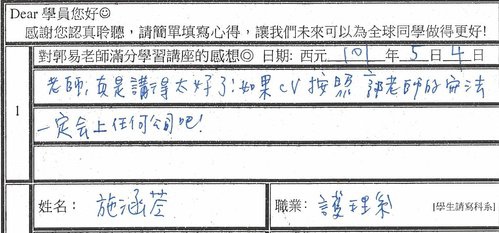 Dear 學員您好☺
感謝您認真聆聽，請簡單填寫心得，讓我們未來可以為全球同學做得更好!
對郭易老師滿分學習講座的感想◎ 日期: 西元 101 年 5 月 4 日
老師,真是講得太好了!如果CV按照郭老師的寫法
1
一定会上任何公司吧!
姓名: 施涵荃 職業: 護理系 [學生請寫科系]